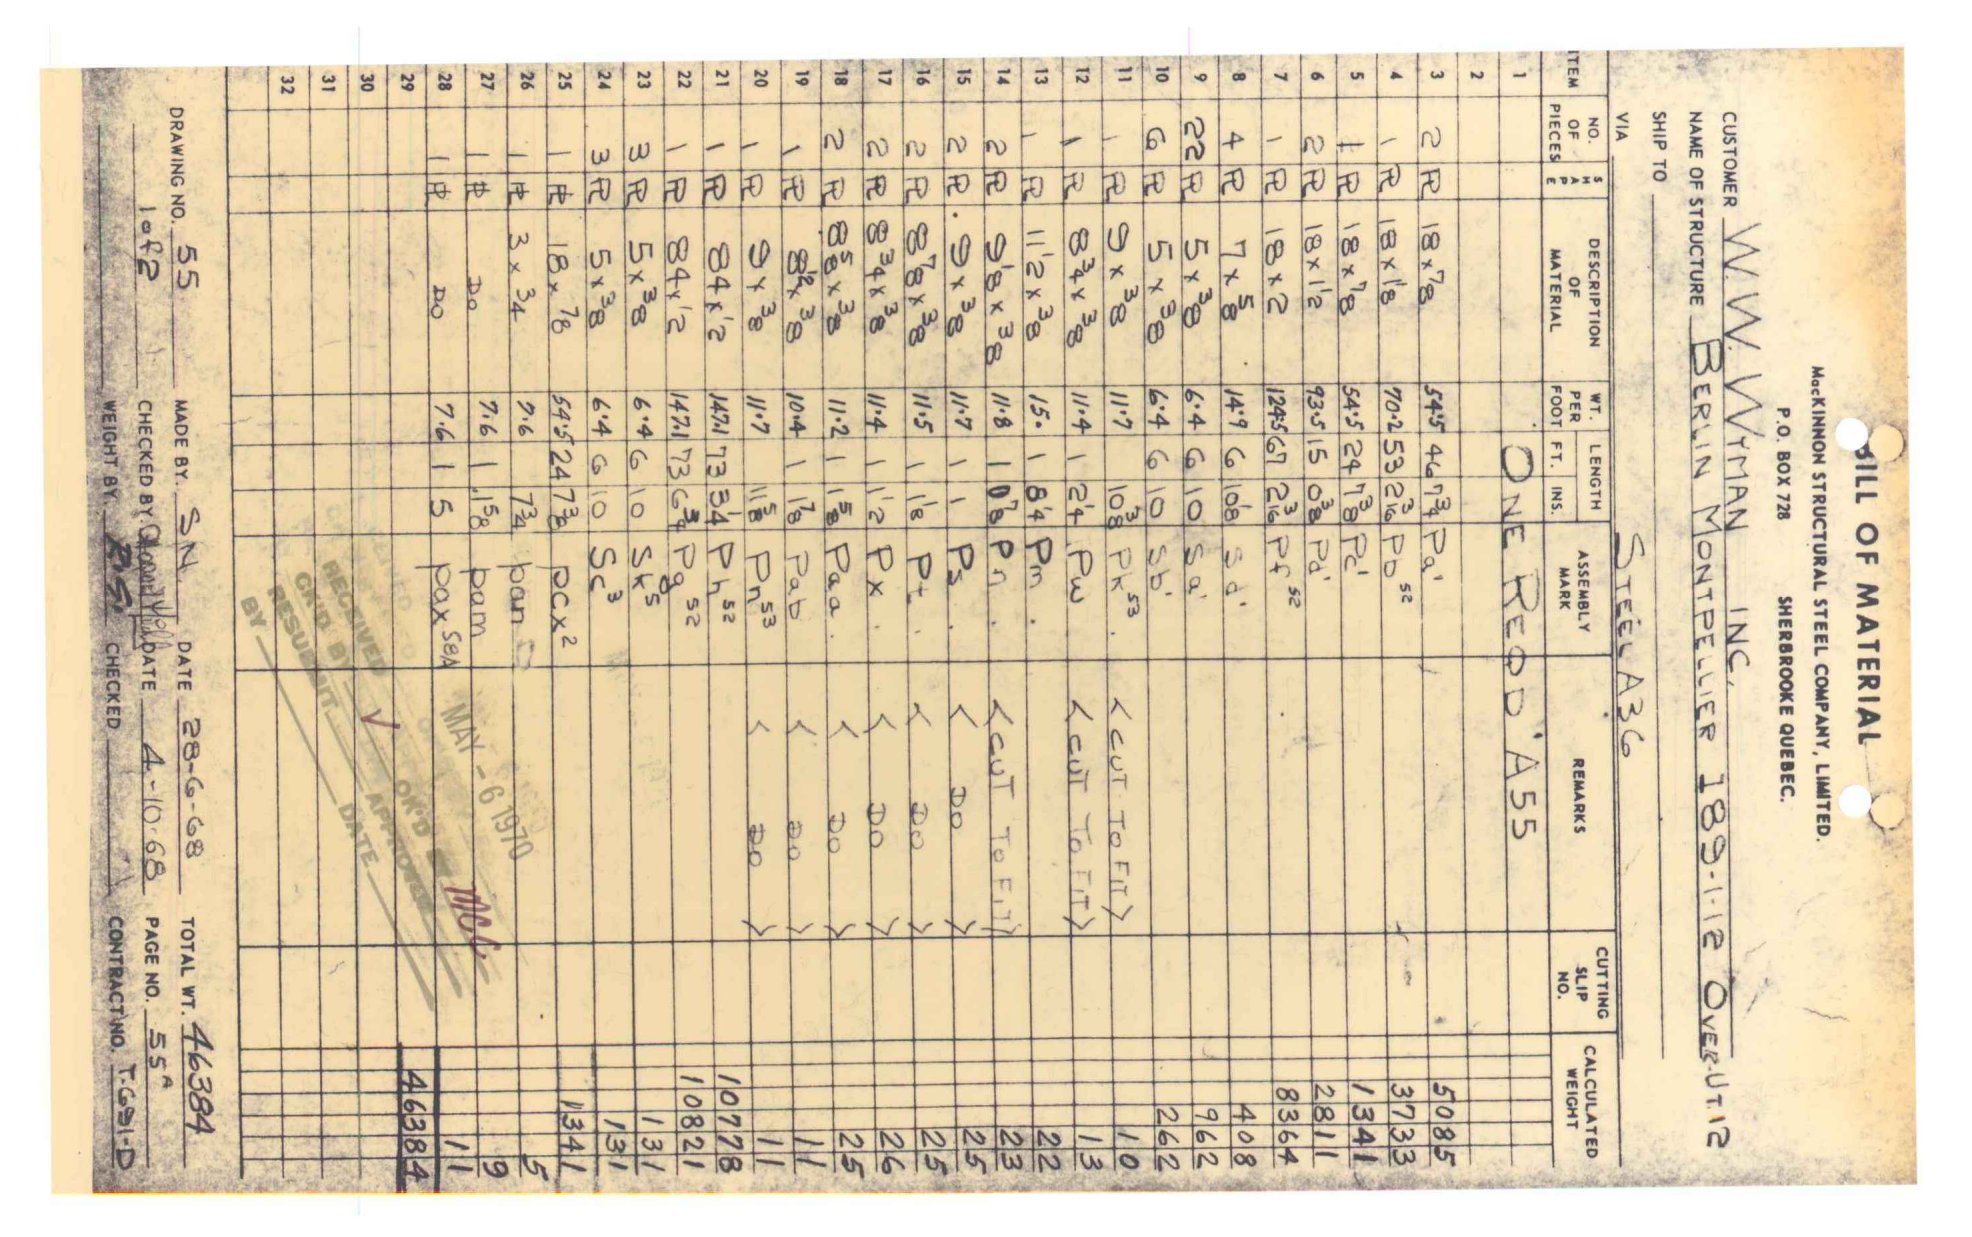 BILL OF MATERIAL
MacKINNON STRUCTURAL STEEL COMPANY, LIMITED.
P.O. BOX 728 SHERBROOKE QUEBEC.
CUSTOMER W. W. WYMAN INC.
NAME OF STRUCTURE BERLIN MONTPELLIER 189-1-12 OVER-UT.12
SHIP TO
VIA STEEL A36
ITEM NO. OF PIECES SHAPE DESCRIPTION OF MATERIAL WT. PER FOOT LENGTH FT. INS. ASSEMBLY MARK REMARKS CUTTING SLIP NO. CALCULATED WEIGHT
1 ONE REQD A55
2
3 2 PL 18 x 7/8 54.5 46 7 3/4 Pa' 5085
4 1 PL 18 x 1 1/8 70.2 53 2 3/16 Pb' 52 3733
5 1 PL 18 x 7/8 54.5 24 7 3/8 Pc' 1341
6 2 PL 18 x 1 1/2 93.5 15 0 3/8 Pd' 2811
7 1 PL 18 x 2 124.5 67 2 3/16 Pf 52 8364
8 4 PL 7 x 5/8 14.9 6 10 1/8 Sd' 408
9 22 PL 5 x 3/8 6.4 6 10 Sa' 962
10 6 PL 5 x 3/8 6.4 6 10 Sb' 262
11 1 PL 9 x 3/8 11.7 10 3/8 Pk 53 < CUT TO FIT > 10
12 1 PL 8 3/4 x 3/8 11.4 1 2 1/4 Pw < CUT TO FIT > 13
13 1 PL 11 1/2 x 3/8 15. 1 8 1/4 Pm 22
14 2 PL 9 1/8 x 3/8 11.8 1 0 7/8 Pn < CUT TO FIT > 23
15 2 PL 9 x 3/8 11.7 1 1 Ps < DO > 25
16 2 PL 8 7/8 x 3/8 11.5 1 1 1/8 Pt < DO > 25
17 2 PL 8 3/4 x 3/8 11.4 1 1 1/2 Px < DO > 26
18 2 PL 8 5/8 x 3/8 11.2 1 1 5/8 Paa < DO > 25
19 1 PL 8 1/2 x 3/8 10.4 1 1 7/8 Pab < DO > 11
20 1 PL 9 x 3/8 11.7 11 5/8 Pn 53 < DO > 11
21 1 PL 84 x 1/2 147.1 73 3 1/4 Ph 52 10778
22 1 PL 84 x 1/2 147.1 73 6 3/4 Pg 52 10821
23 3 PL 5 x 3/8 6.4 6 10 Sk 5 131
24 3 PL 5 x 3/8 6.4 6 10 Sc 3 131
25 1 PL 18 x 7/8 54.5 24 7 3/8 pcx 2 1341
26 1 PL 3 x 3/4 7.6 7 3/4 pan 5
27 1 PL DO 7.6 1 1 5/8 pam 9
28 1 PL DO 7.6 1 5 pax 58A 11
29 46384
30
31
32
RECEIVED MAY - 6 1970
CK'D BY OK'D MCC
RESUBMIT APPROVED
BY DATE
DRAWING NO. 55 MADE BY. SN. DATE 28-6-68 TOTAL WT. 46384
1 of 2 CHECKED BY DATE 4-10-68 PAGE NO. 55A
WEIGHT BY CHECKED CONTRACT NO. T-691-D